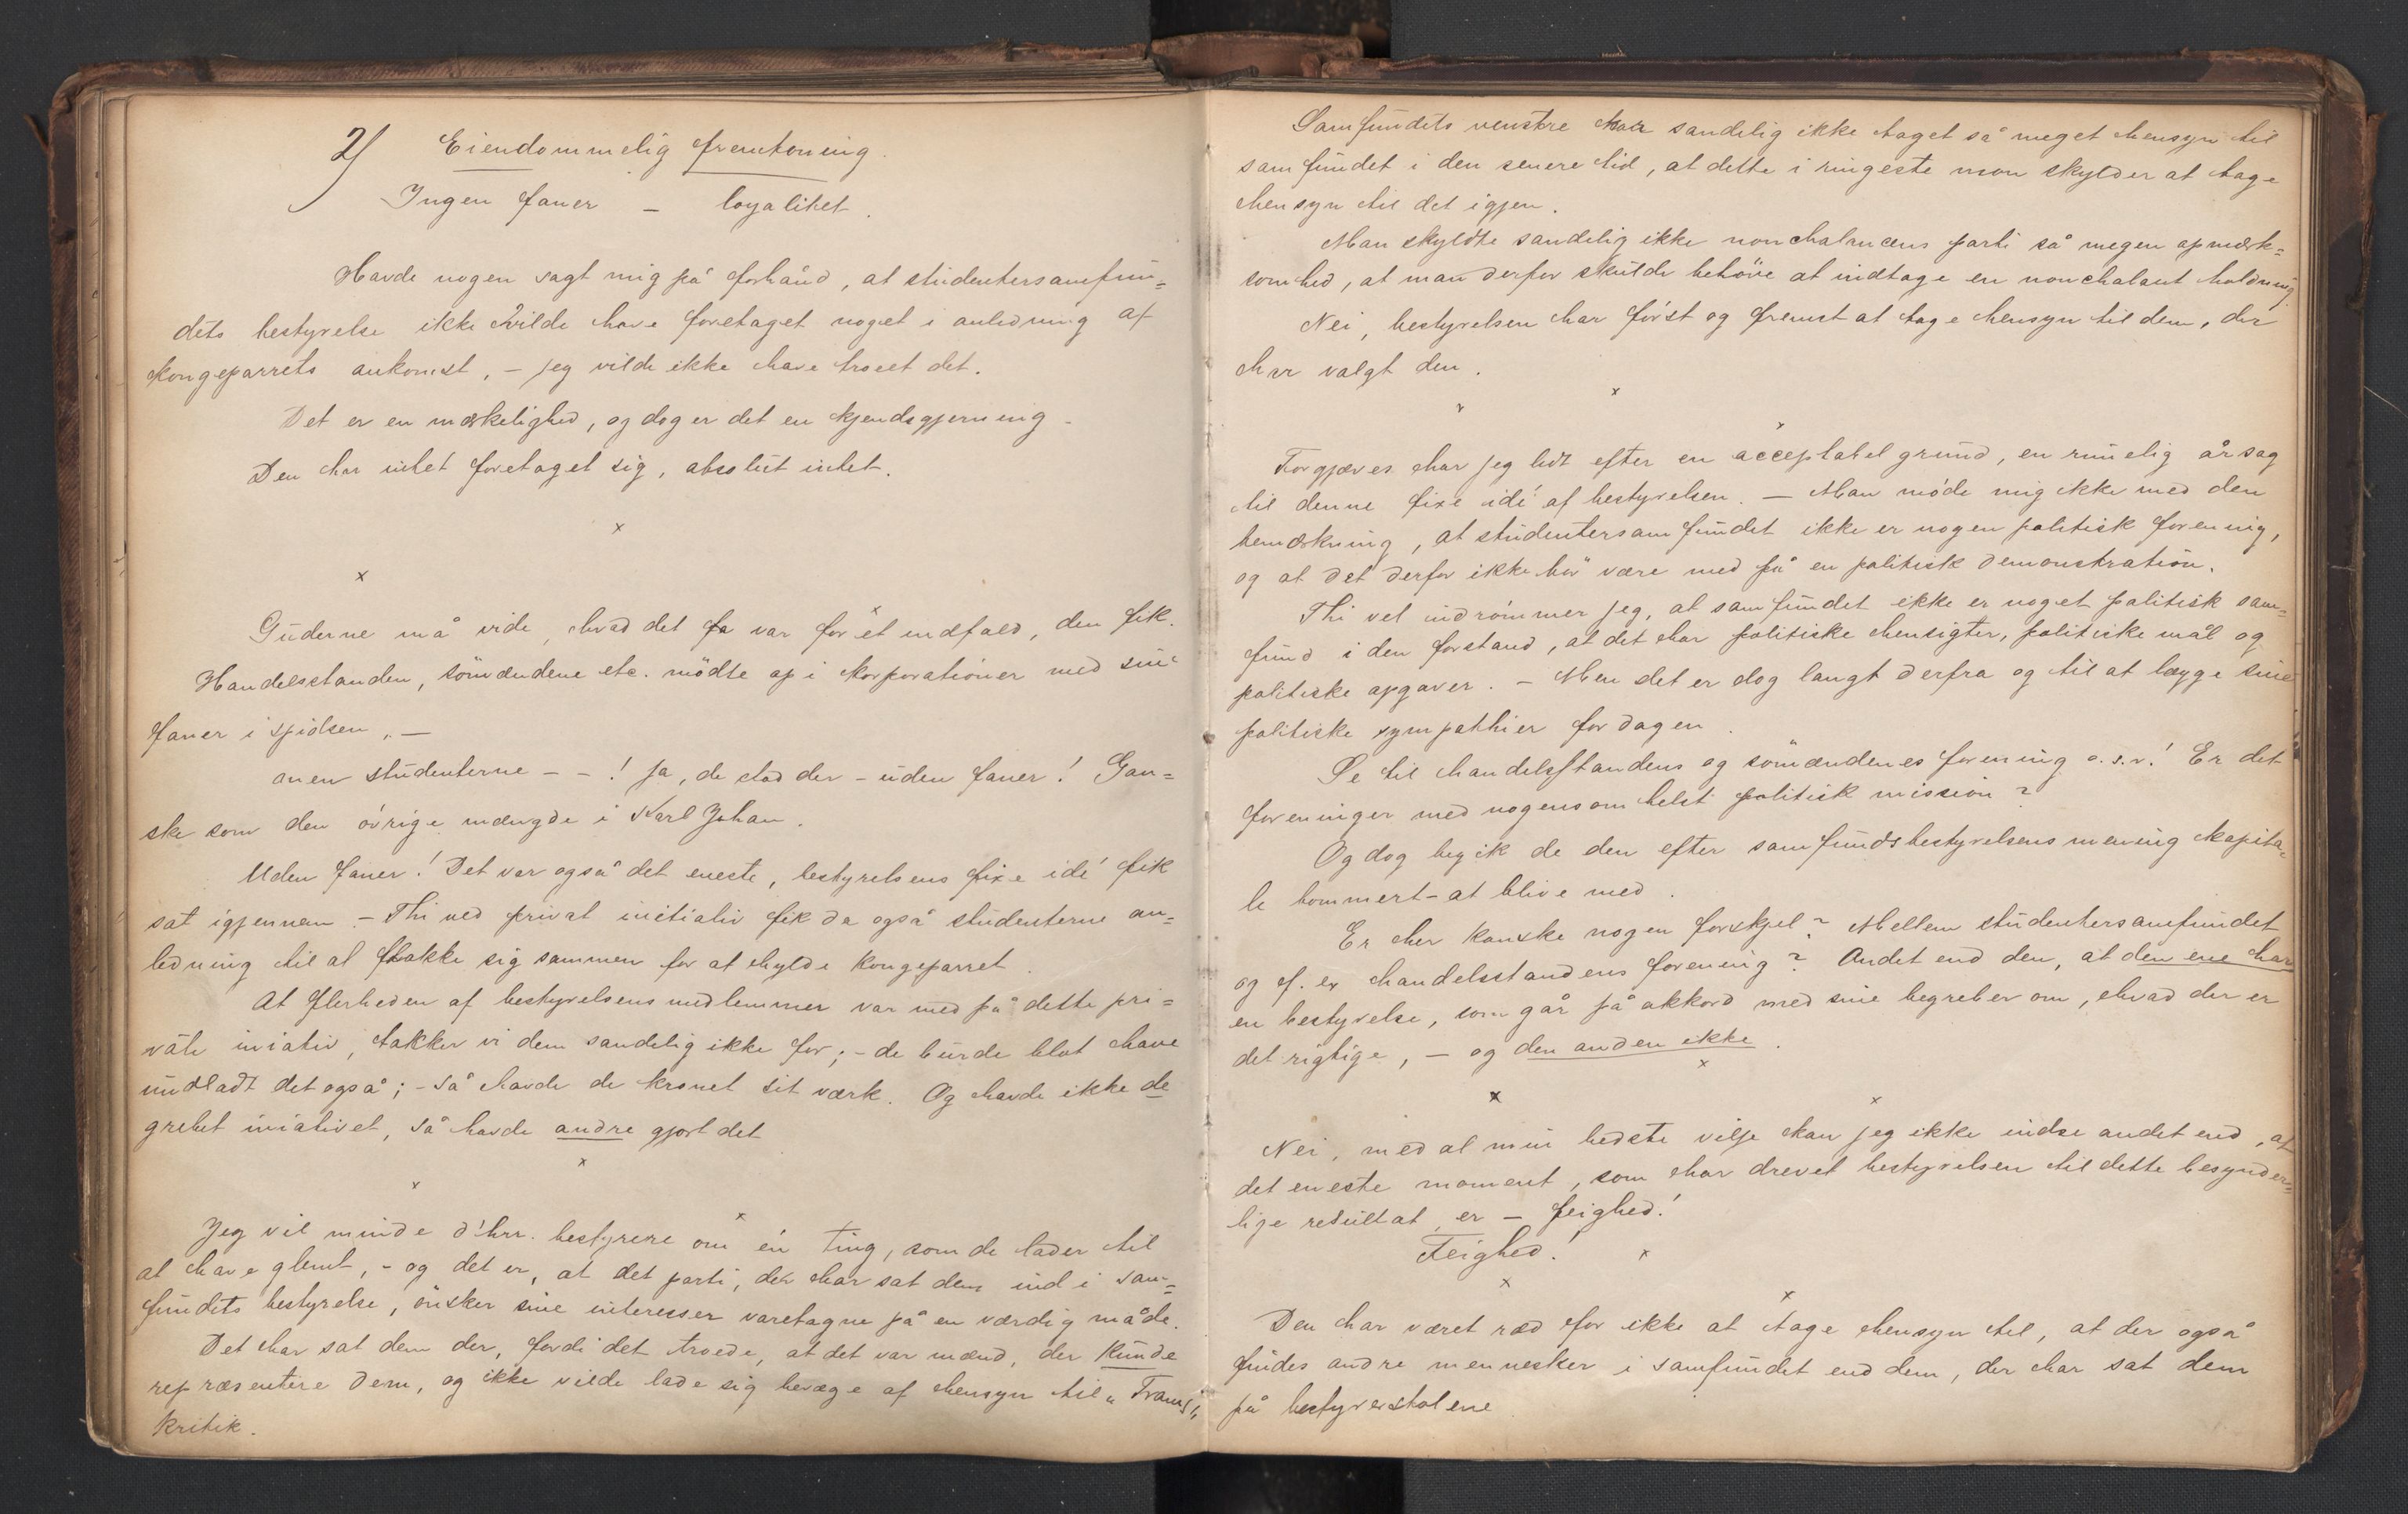 2) Eiendommelig fremtoning.
Ingen faner – loyalitet.
Havde nogen sagt mig på forhånd, at studentersamfun=
dets bestyrelse ikke vilde have foretaget noget i anledning af
kongeparrets ankomst, – jeg vilde ikke have troet det.
Det er en mærkelighed, og dog er det en kjendsgjerning –
Den har intet foretaget sig, absolut intet.
x
x x
Guderne må vide, hvad det fa var for et indfald, den fik.
Handelsstanden, sömændene etc. mödte op i korporationer med sine
faner i spidsen, –
men studenterne – – ! Ja, de stod der – uden faner! Gan=
ske som den övrige mængde i Karl Johan.
Uden faner! Det var også det eneste, bestyrelsens fixe idé fik
sat igjennem. – Thi ved privat initiativ fik da også studenterne an=
ledning til at flokke sig sammen for at hylde kongeparret.
At flerheden af bestyrelsens medlemmer var med på dette pri=
vate iniativ, takker vi dem sandelig ikke for; – de burde blot have
undladt det også; – så havde de kronet sit værk. Og havde ikke de
grebet iniativet, så havde andre gjort det
x
x x
Jeg vil minde d'hrr. bestyrere om én ting, som de lader til
at have glemt, – og det er, at det parti, der har sat dem ind i sam=
fundets bestyrelse, önsker sine interesser varetagne på en værdig måde.
Det har sat dem der, fordi det troede, at det var mænd, der kunde
repræsentere dem, og ikke vilde lade sig bevæge af hensyn til „Frams“
kritik.
Samfundets venstre har sandelig ikke taget så meget hensyn til
samfundet i den senere tid, at dette i ringeste mon skylder at tage
hensyn til det igjen.
Man skyldte sandelig ikke nonchalancens parti så megen opmærk=
somhed, at man derfor skulde behöve at indtage en nonchalant holdning.
Nei, bestyrelsen har först og fremst at tage hensyn til dem, der
har valgt den.
x
x x
Forgjæves har jeg ledt efter en acceptabel grund, en rimelig årsag
til denne fixe idé af bestyrelsen. – Man möde mig ikke med den
bemærkning, at studentersamfundet ikke er nogen politisk forening,
og at det derfor ikke bör være med på en politisk demonstration.
Thi vel indrömmer jeg, at samfundet ikke er noget politisk sam=
fund i den forstand, at det har politiske hensigter, politiske mål og
politiske opgaver. – Men det er dog langt derfra og til at lægge sine
politiske sympathier for dagen.
Se til handelsstandens og sömændenes forening o.s.v.! Er det
foreninger med nogensomhelst politisk mission?
Og dog begik de den efter samfundsbestyrelsens mening kapita=
le bommert – at blive med.
Er her kanske nogen forskjel? Mellem studentersamfundet
og f. ex handelsstandens forening? Andet end den, at den ene har
en bestyrelse, som går på akkord med sine begreber om, hvad der er
det rigtige, – og den anden ikke.
x
x x
Nei, med al min bedste vilje kan jeg ikke indse andet end, at
det eneste moment, som har drevet bestyrelsen til dette besynder=
lige resultat, er – feighed!
Feighed!
x
x x
Den har været ræd for ikke at tage hensyn til, at der også
findes andre mennesker i samfundet end dem, der har sat dem
på bestyrerstolene